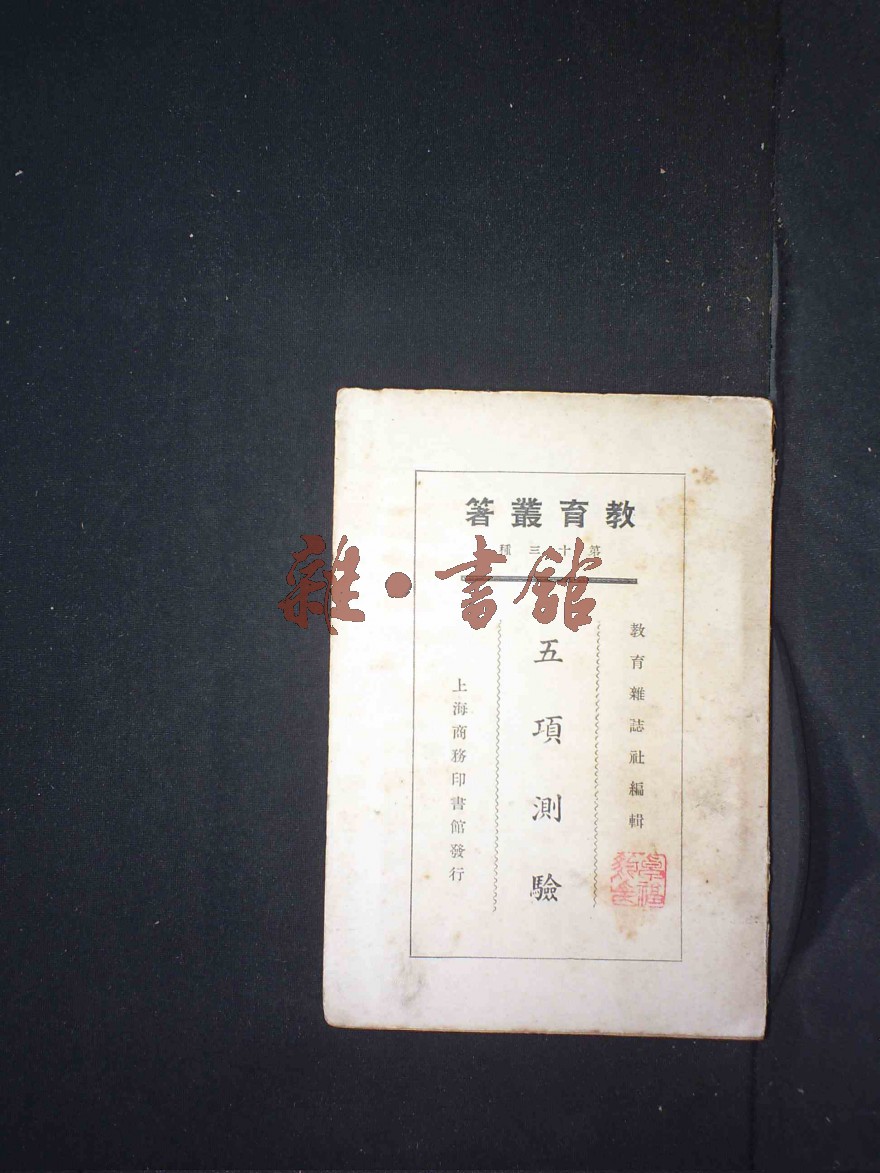 教育叢著
第十三種
教育雜誌社編輯
五項測驗
上海商務印書館發行
雜·書館